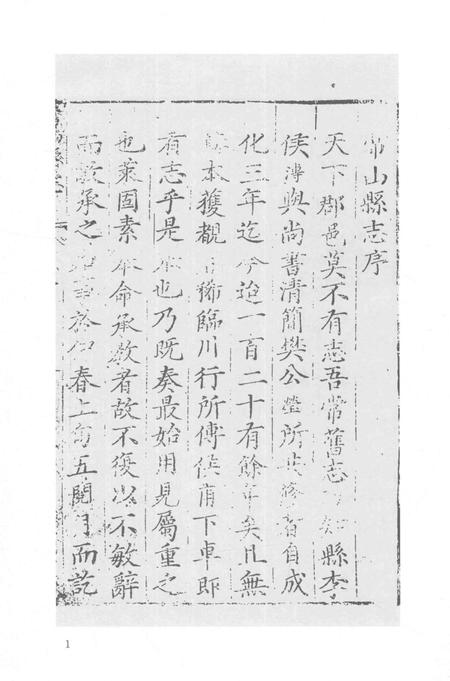 常山縣志序
天下郡邑莫不有志吾常舊志知縣李
侯溥與尚書清簡樊公瑩所共修者自成
化三年迄今迨一百二十有餘年矣凡無
本獲觀臨川行所傅侯甫下車即
有志乎是也乃既奏最始用見屬重之
也萊固素命承教者故不復以不敏辭
而敬承之於仲春上旬五閱月而訖
1